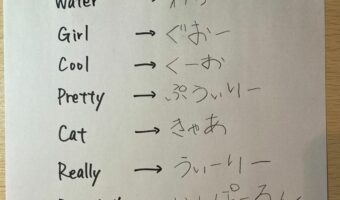 Water →
Girl → ぐおー
Cool → くーお
Pretty → ぷうぃりー
Cat → きゃあ
Really → うぃーりー